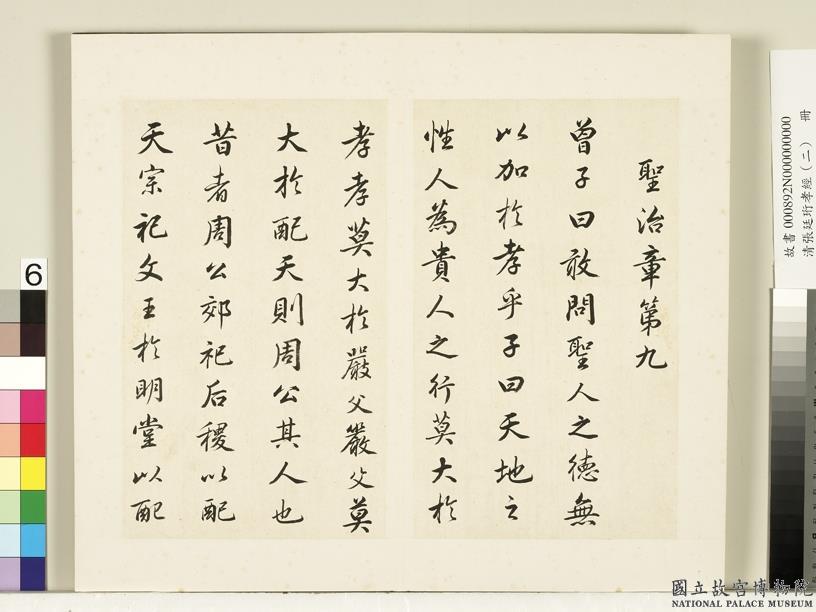 聖治章第九
曾子曰敢問聖人之德無
以加於孝乎子曰天地之
性人為貴人之行莫大於
孝孝莫大於嚴父嚴父莫
大於配天則周公其人也
昔者周公郊祀后稷以配
天宗祀文王於明堂以配
故書 000892N000000000
清張廷珩孝經（二） 冊
6
國立故宮博物院
NATIONAL PALACE MUSEUM